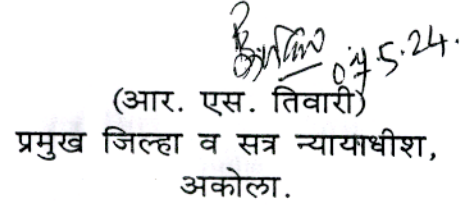 07.5.24.
(आर. एस. तिवारी)
प्रमुख जिल्हा व सत्र न्यायाधीश,
अकोला.